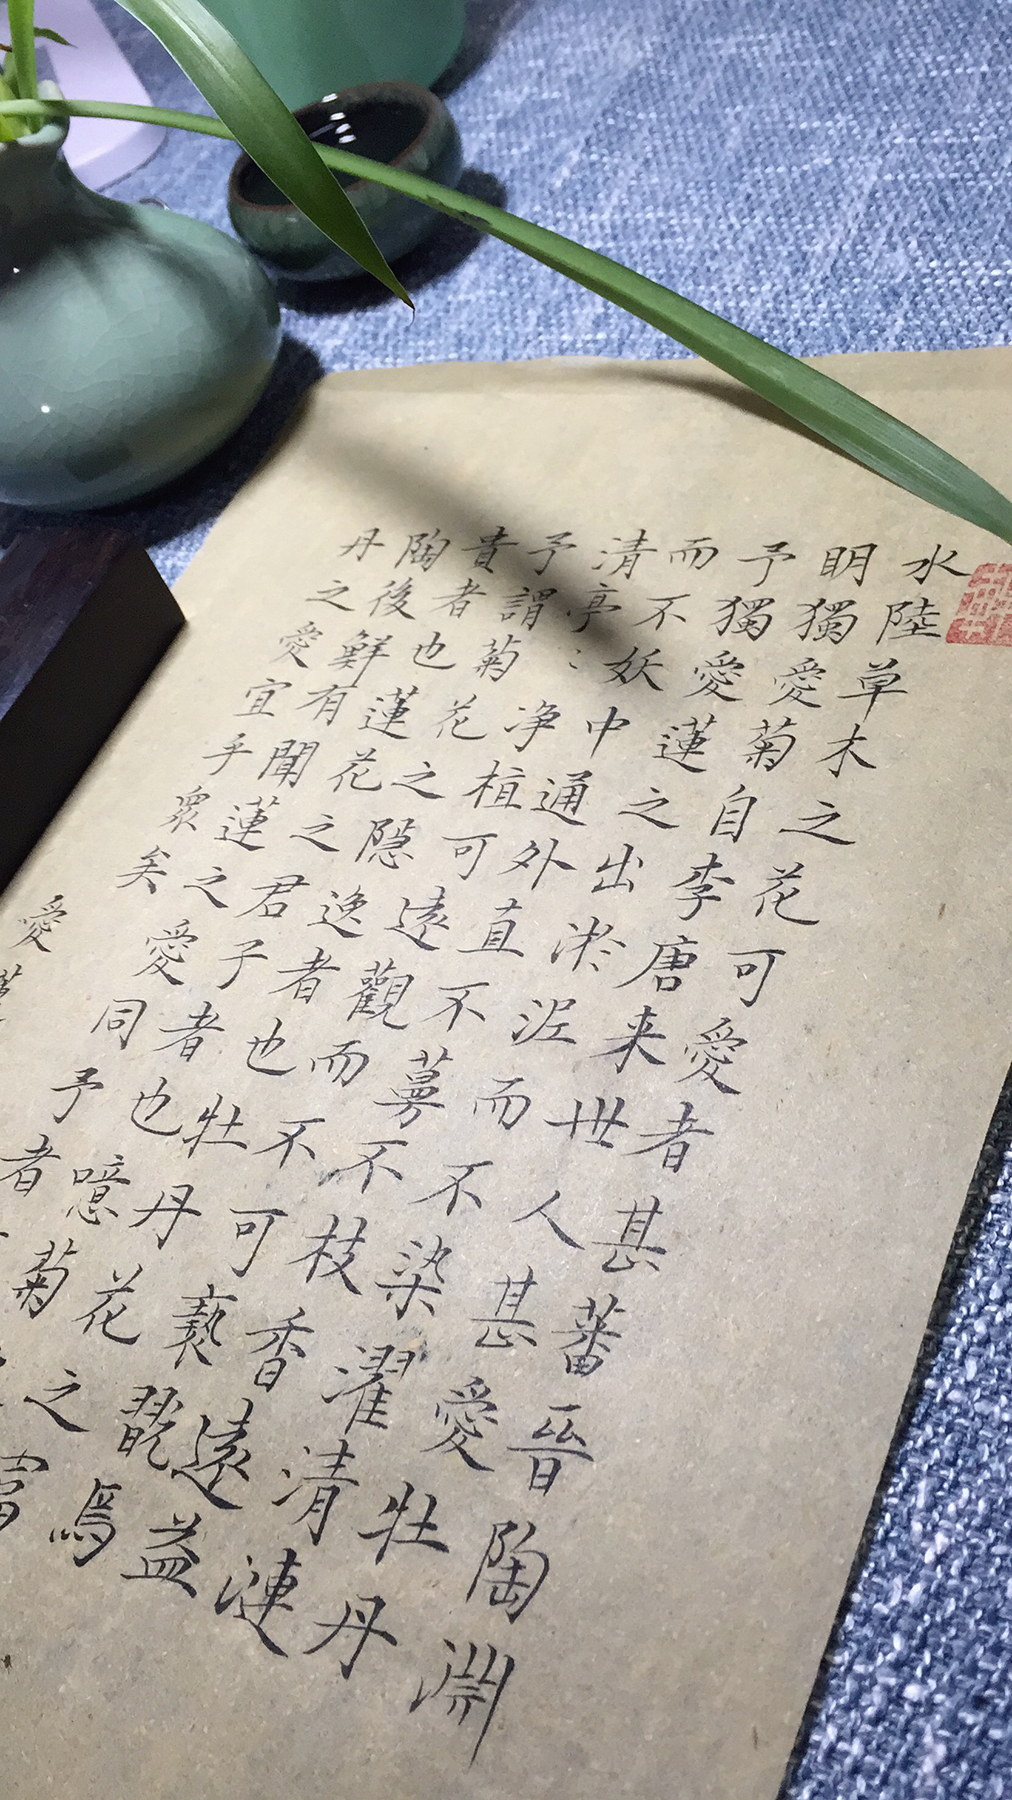 水陸草木之花可愛者甚蕃晉陶淵
明獨愛菊自李唐来世人甚愛牡丹
予獨愛蓮之出淤泥而不染濯清漣
而不妖中通外直不蔓不枝香遠益
清亭〻净植可遠觀而不可褻翫焉
予謂菊花之隱逸者也牡丹花之富
貴者也蓮花之君子者也噫菊
陶後鮮有聞蓮之愛同予者
丹之愛宜乎眾矣
愛蓮